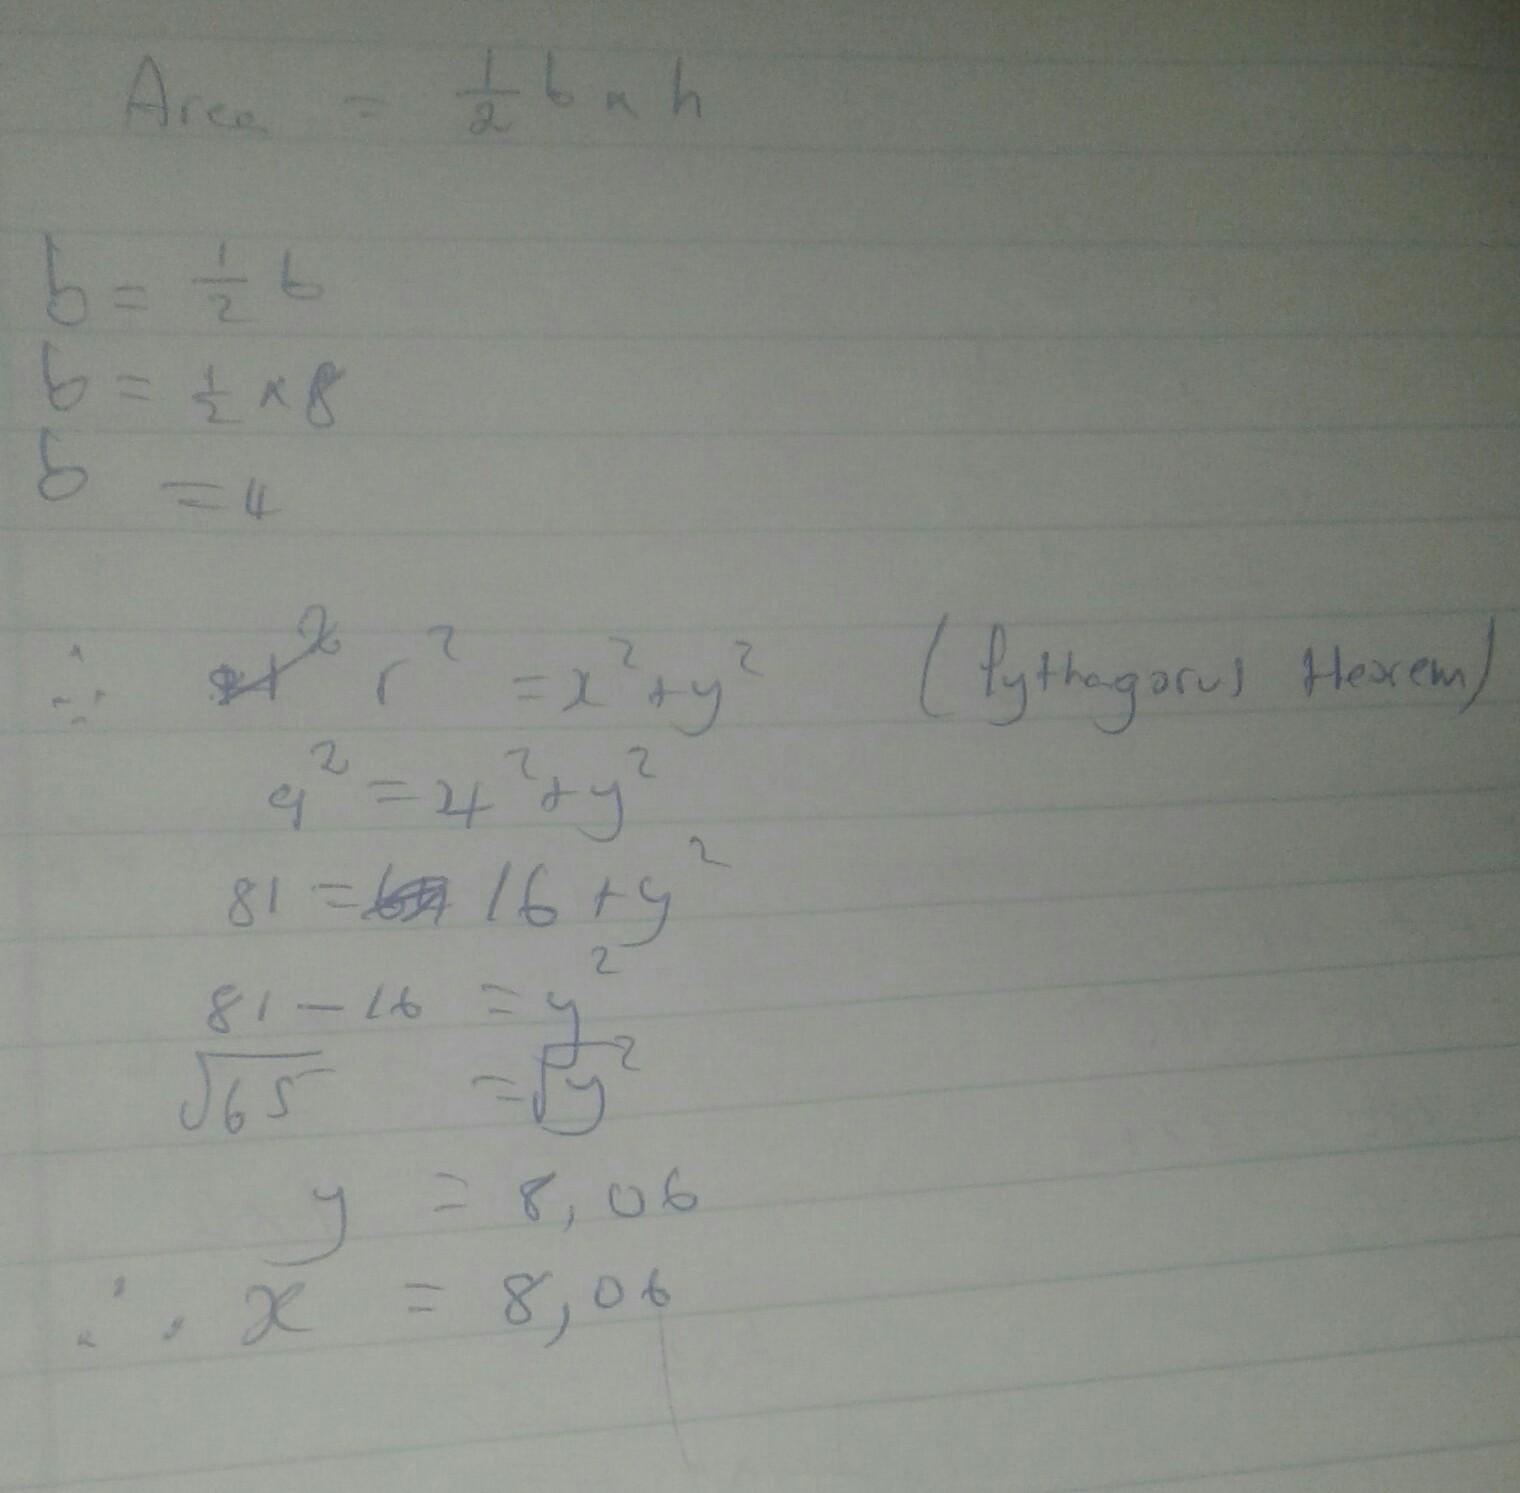 Area = 1/2 b x h
b = 1/2 b
b = 1/2 x 8
b = 4
∴ r² = x² + y² (Pythagorus Heorem)
9² = 4² + y²
81 = 16 + y²
81 - 16 = y²
√65 = √y²
y = 8,06
∴ x = 8,06